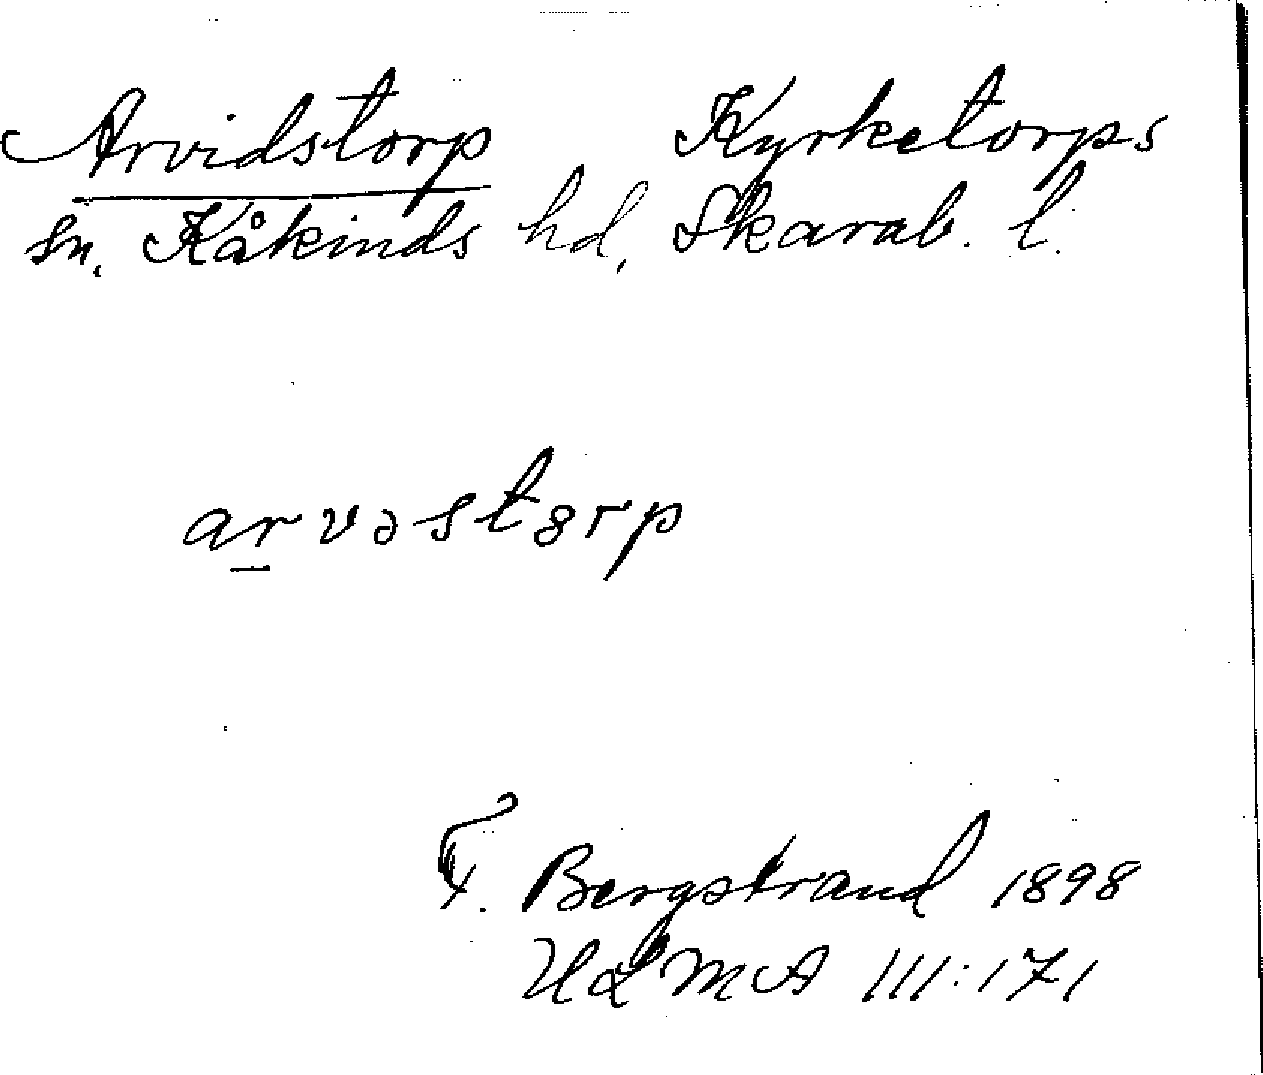 Arvidstorp Kyrketorps
sn. Kåkinds hd, Skarab. l.
arvəstȣrp
F. Bergstrand 1898
ULMA 111:171